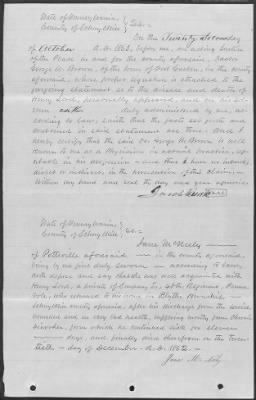 State of Pennsylvania,
County of Schuylkill } SS.
On this Twenty Second day
of October A.D. 1863, before me, an acting Justice
of the Peace in and for the county aforesaid, Doctor
George W. Brown, of the town of Port Carbon, in the county
aforesaid, whose proper signature is attached to the
foregoing statement as to the disease and death of
Henry Lord, personally appeared, and on his solemn
oath duly administered by me, according
to law, saith that the facts set forth and
embodied in said statement are true. And I
hereby certify that the said Dr George W. Brown is well
known to me as a Physician in actual practice, reputable
in his profession — and that I have no interest,
direct or indirect, in the prosecution of this claim.
Witness my hand and seal the day and year aforesaid.
Jacob
State of Pennsylvania,
County of Schuylkill } SS.
Jane McNeely
of Pottsville aforesaid — in the county aforesaid,
being by me first duly sworn — according to law,
doth depose and say that she was well acquainted with
Henry Lord, a private of Company I, 48th Regiment, Penna
Vols, who returned to his home in Blythe Township —
Schuylkill county aforesaid, after his discharge from the service
wounded and in very bad health, suffering mostly from Chronic
Diarrhoea, from which he continued sick for eleven
days, and finally died therefrom on the Twentieth
— day of — December — A.D. 1862. —
Jane McNeely